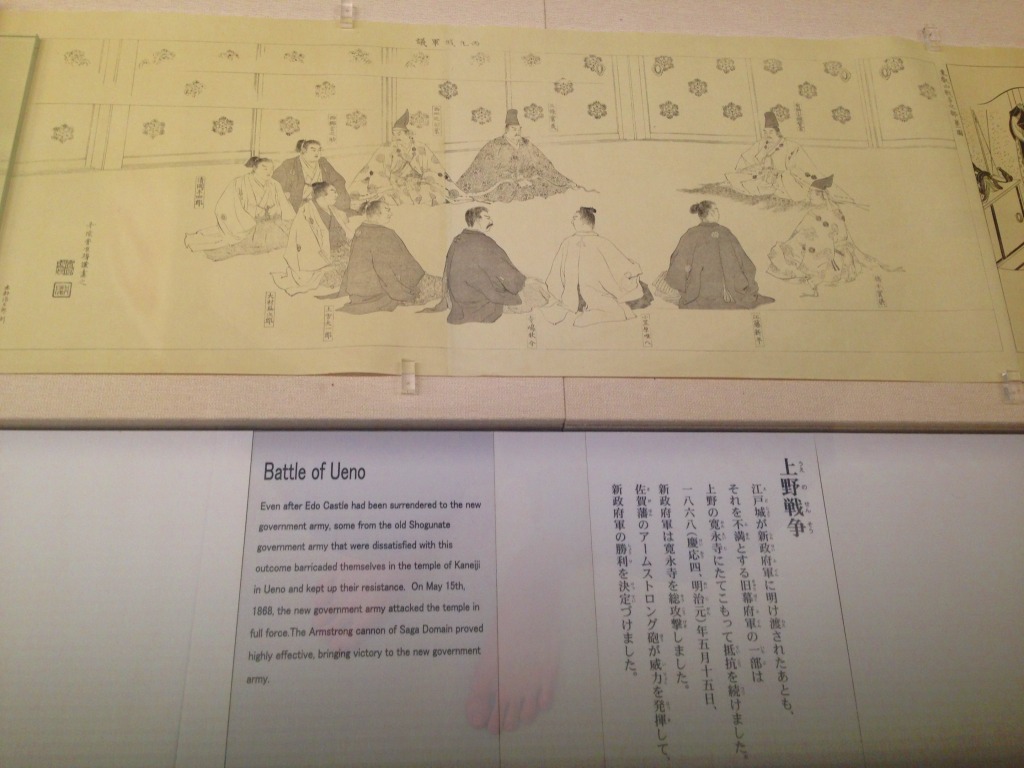 Battle of Ueno
Even after Edo Castle had been surrendered to the new
government army, some from the old Shogunate
government army that were dissatisfied with this
outcome barricaded themselves in the temple of Kaneiji
in Ueno and kept up their resistance. On May 15th,
1868, the new government army attacked the temple in
full force.The Armstrong cannon of Saga Domain proved
highly effective, bringing victory to the new government
army.
上野戦争
江戸城が新政府軍に明け渡されたあとも、
それを不満とする旧幕府軍の一部は
上野の寛永寺にたてこもって抵抗を続けました。
一八六八(慶応四、明治元)年五月十五日、
新政府軍は寛永寺を総攻撃しました。
佐賀藩のアームストロング砲が威力を発揮して、
新政府軍の勝利を決定づけました。